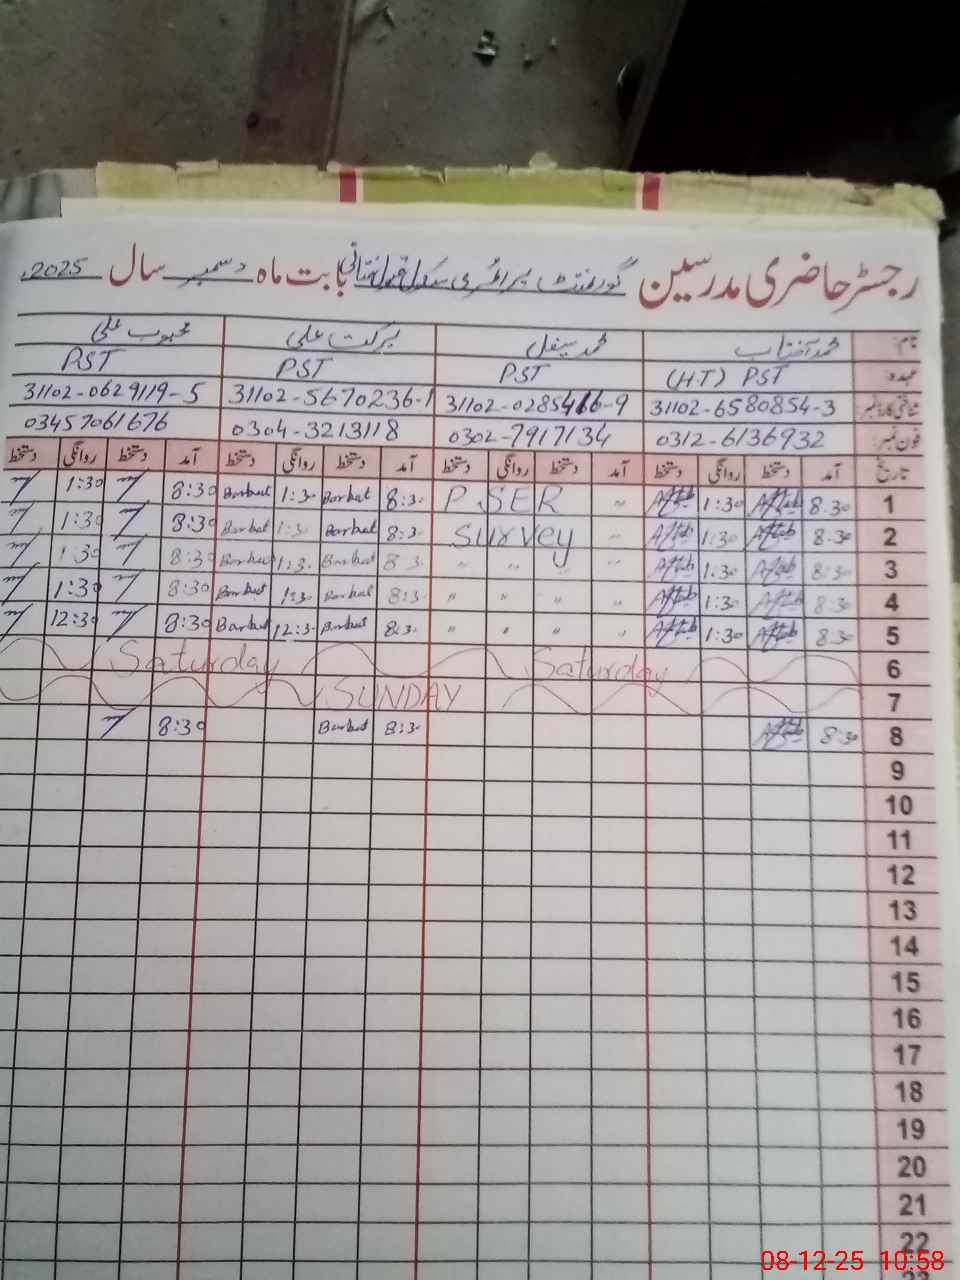 رجسٹر حاضری مدرسین گورنمنٹ پرائمری سکول بابت ماہ دسمبر سال 2025ء
نام: محمد آفتاب محمد سیفل برکت علی محبوب علی
عہدہ: (H.T) PST PST PST PST
شناختی کارڈ نمبر: 31102-6580854-3 31102-0285466-9 31102-5670236-1 31102-0629119-5
فون نمبر: 0312-6136932 0302-7917134 0304-3213118 03457061676
تاریخ آمد دستخط روانگی دستخط آمد دستخط روانگی دستخط آمد دستخط روانگی دستخط آمد دستخط روانگی دستخط
1 8.30 Aftab 1:30 Aftab " PSER 8:3. Barkat 1:3. Barkat 8:30 1:30
2 8.30 Aftab 1:30 Aftab " Survey 8:3. Barkat 1:3. Barkat 8:30 1:30
3 8:30 Aftab 1:30 Aftab " " " " 8:3. Barkat 1:3. Barkat 8:30 1:30
4 8:30 Aftab 1:30 Aftab " " " " 8:3. Barkat 1:3. Barkat 8:30 1:30
5 8:30 Aftab 1:30 Aftab " " " " 8:3. Barkat 12:3. Barkat 8:30 12:30
6 Saturday Saturday
7 SUNDAY
8 8:30 Aftab 8:3. Barkat 8:30
9
10
11
12
13
14
15
16
17
18
19
20
21
22
23
08-12-25 10:58